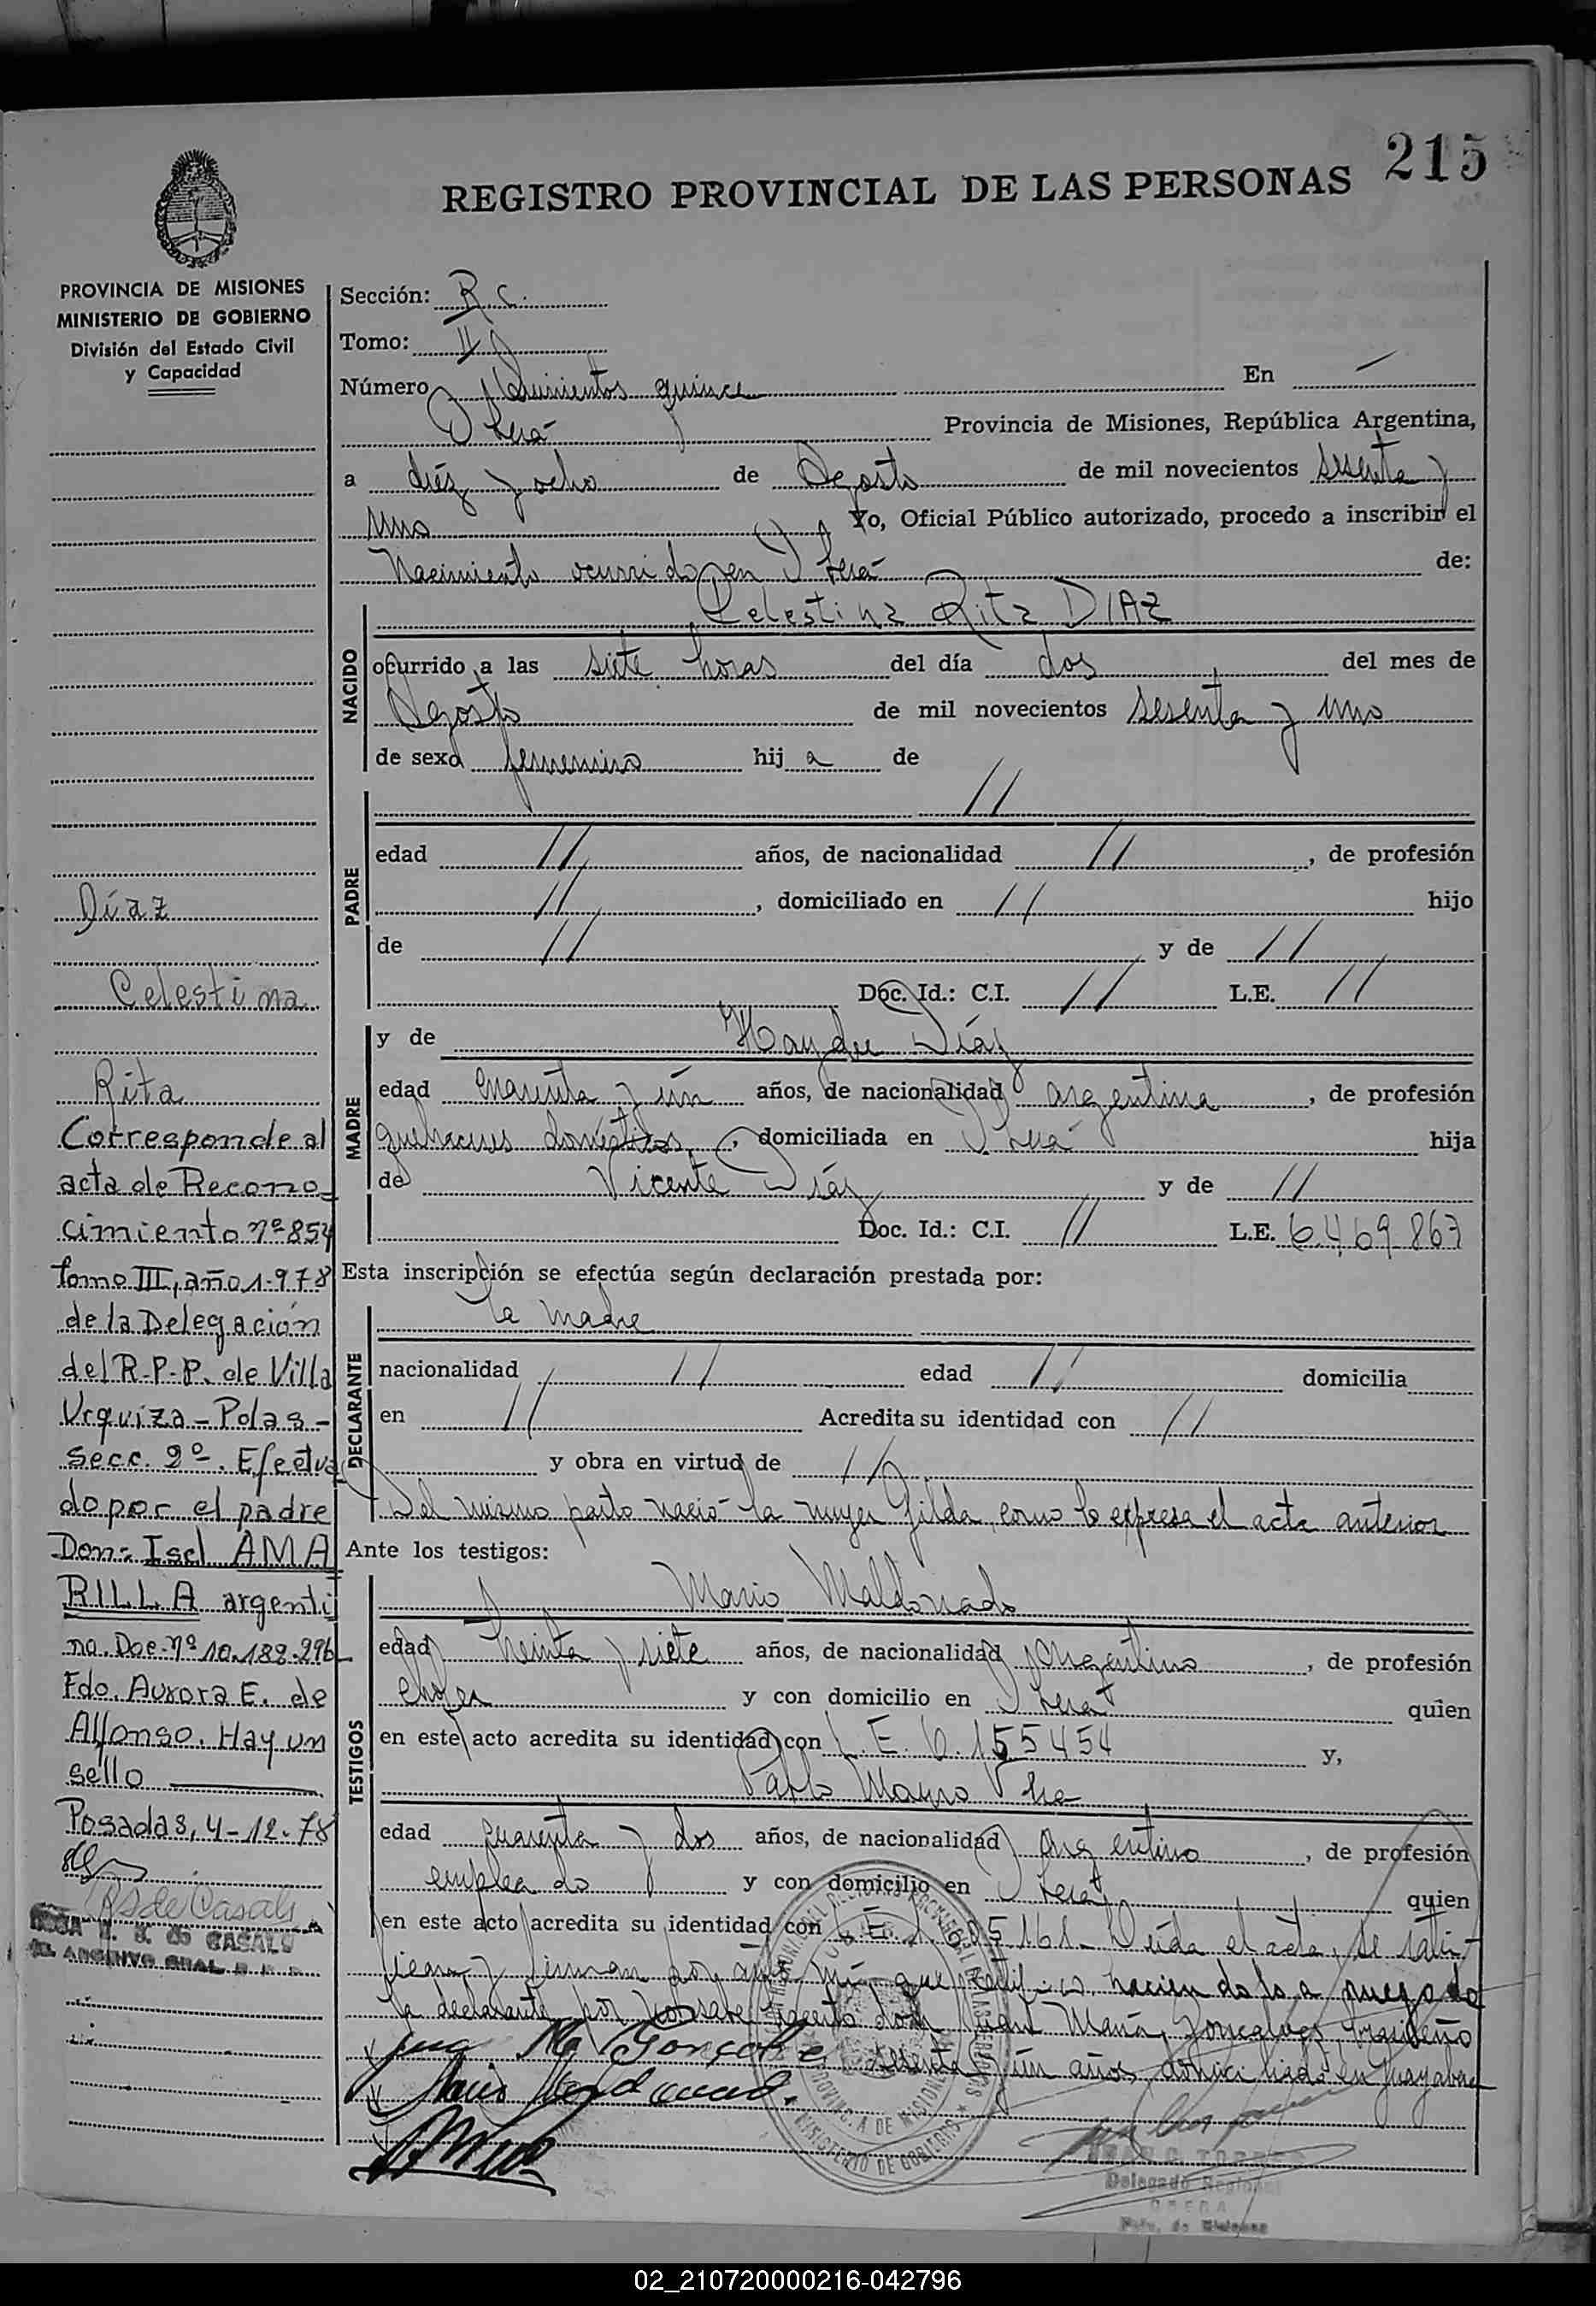 215
REGISTRO PROVINCIAL DE LAS PERSONAS
PROVINCIA DE MISIONES
MINISTERIO DE GOBIERNO
División del Estado Civil
y Capacidad
Díaz
Celestina
Rita
Corresponde al
acta de Recono-
cimiento nº 854
Tomo III, año 1.978
de la Delegación
del R.P.P. de Villa
Urquiza - Pdas -
secc. 2º. Efectua
do por el padre
Don: Isel AMA
RILLA argenti
no. Doc. nº 10.188.296
Fdo. Aurora E. de
Alfonso. Hay un
sello
Posadas, 4-12-78
RS de Casals
DE CASALS
ARCHIVO GRAL. R. P. P.
Sección: R.C.
Tomo: II
Número Quinientos quince En /
Oberá Provincia de Misiones, República Argentina,
a diez y ocho de Agosto de mil novecientos sesenta y
uno Yo, Oficial Público autorizado, procedo a inscribir el
Nacimiento ocurrido en Oberá de:
NACIDO
Celestina Rita DIAZ
ocurrido a las siete horas del día dos del mes de
Agosto de mil novecientos sesenta y uno
de sexo femenino hij a de
PADRE
//
edad // años, de nacionalidad //, de profesión
//, domiciliado en // hijo
de // y de //
Doc. Id.: C.I. // L.E. //
MADRE
y de Haydee Díaz
edad cuarenta y un años, de nacionalidad argentina, de profesión
quehaceres domésticos, domiciliada en Oberá hija
de Vicente Díaz y de //
Doc. Id.: C.I. // L.E. 6.469.867
Esta inscripción se efectúa según declaración prestada por:
DECLARANTE
la madre
nacionalidad // edad // domicilia
en // Acredita su identidad con //
y obra en virtud de //
Del mismo parto nació la mujer Gilda, como lo expresa el acta anterior
Ante los testigos:
TESTIGOS
Mario Maldonado
edad treinta y siete años, de nacionalidad Argentino, de profesión
chofer y con domicilio en Oberá quien
en este acto acredita su identidad con L.E. 6.155454 y,
Pablo Mauro
edad cuarenta y dos años, de nacionalidad Argentino, de profesión
empleado y con domicilio en Oberá quien
en este acto acredita su identidad con L.E. Leída el acta, se rati-
fican y firman por ante mí, que certifico, haciendolo a ruego de
la declarante por no saber hacerlo don Juan María Goncalves, brasileño
sesenta y un años, domiciliado en Guayabera
PROVINCIA DE MISIONES
MINISTERIO DE GOBIERNO
JUAN C. TORRES
Delegado Regional
OBERA
Pcia. de Misiones
02_210720000216-042796